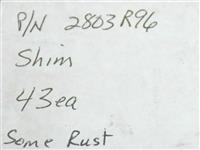 P/N 2803R96
Shim
43ea
Some Rust